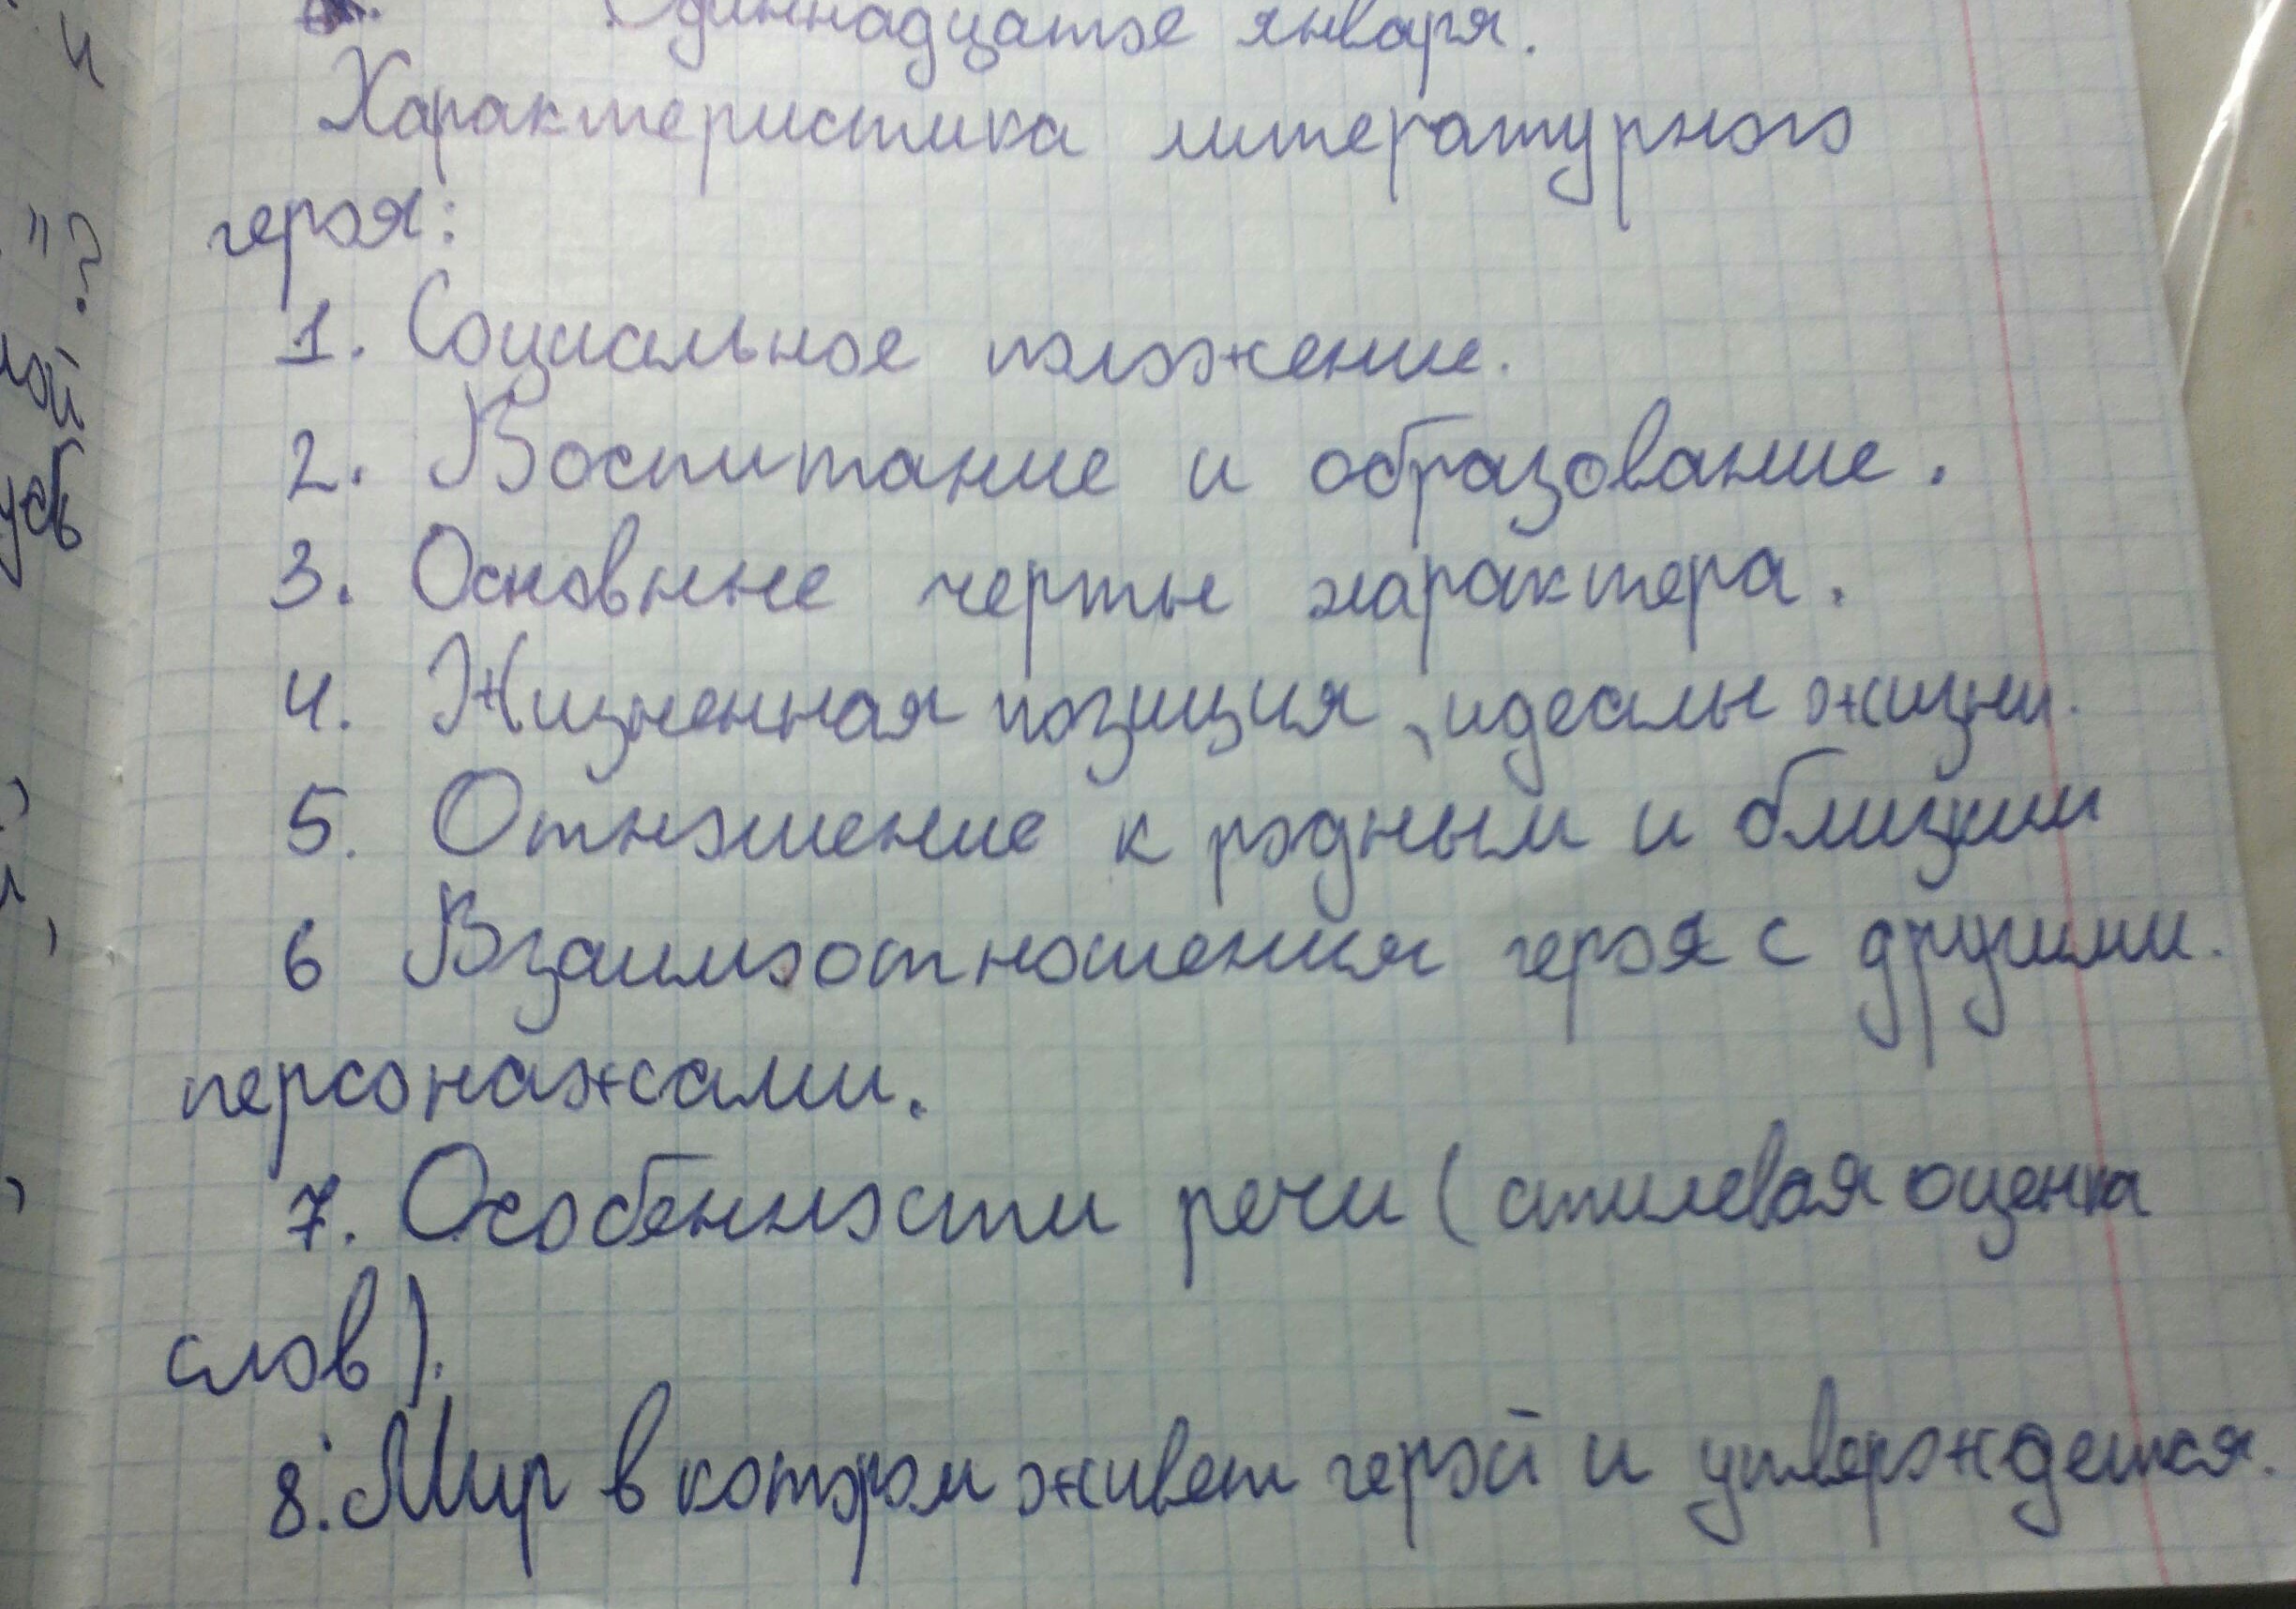 Одиннадцатое января.
Характеристика литературного
героя:
1. Социальное положение.
2. Воспитание и образование.
3. Основные черты характера.
4. Жизненная позиция, идеалы жизни.
5. Отношение к родным и близким
6 Взаимоотношения героя с другими.
персонажами.
7. Особенности речи (стилевая оценка
слов).
8. Мир в котором живет герой и утверждется.